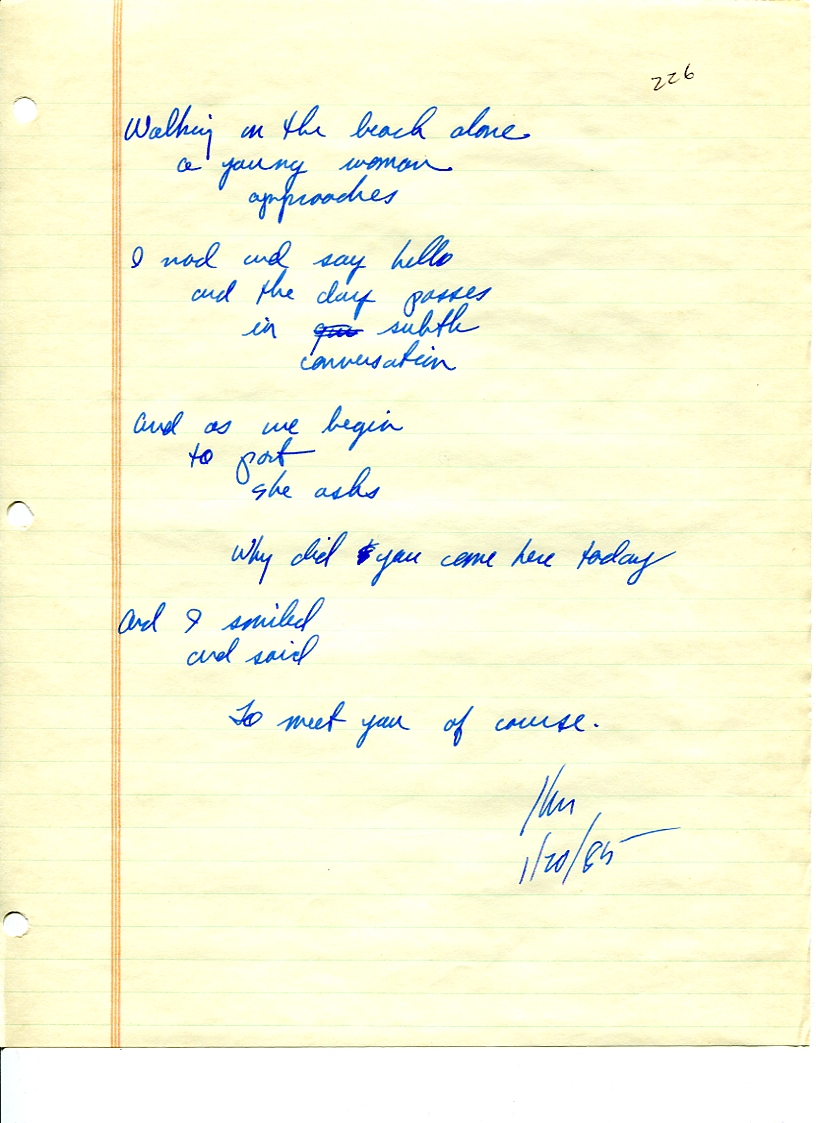 226
Walking on the beach alone
a young woman
approaches
I nod and say hello
and the day passes
in subtle
conversation
And as we begin
to part
she asks
Why did you come here today
And I smiled
and said
To meet you of course.
1/20/85